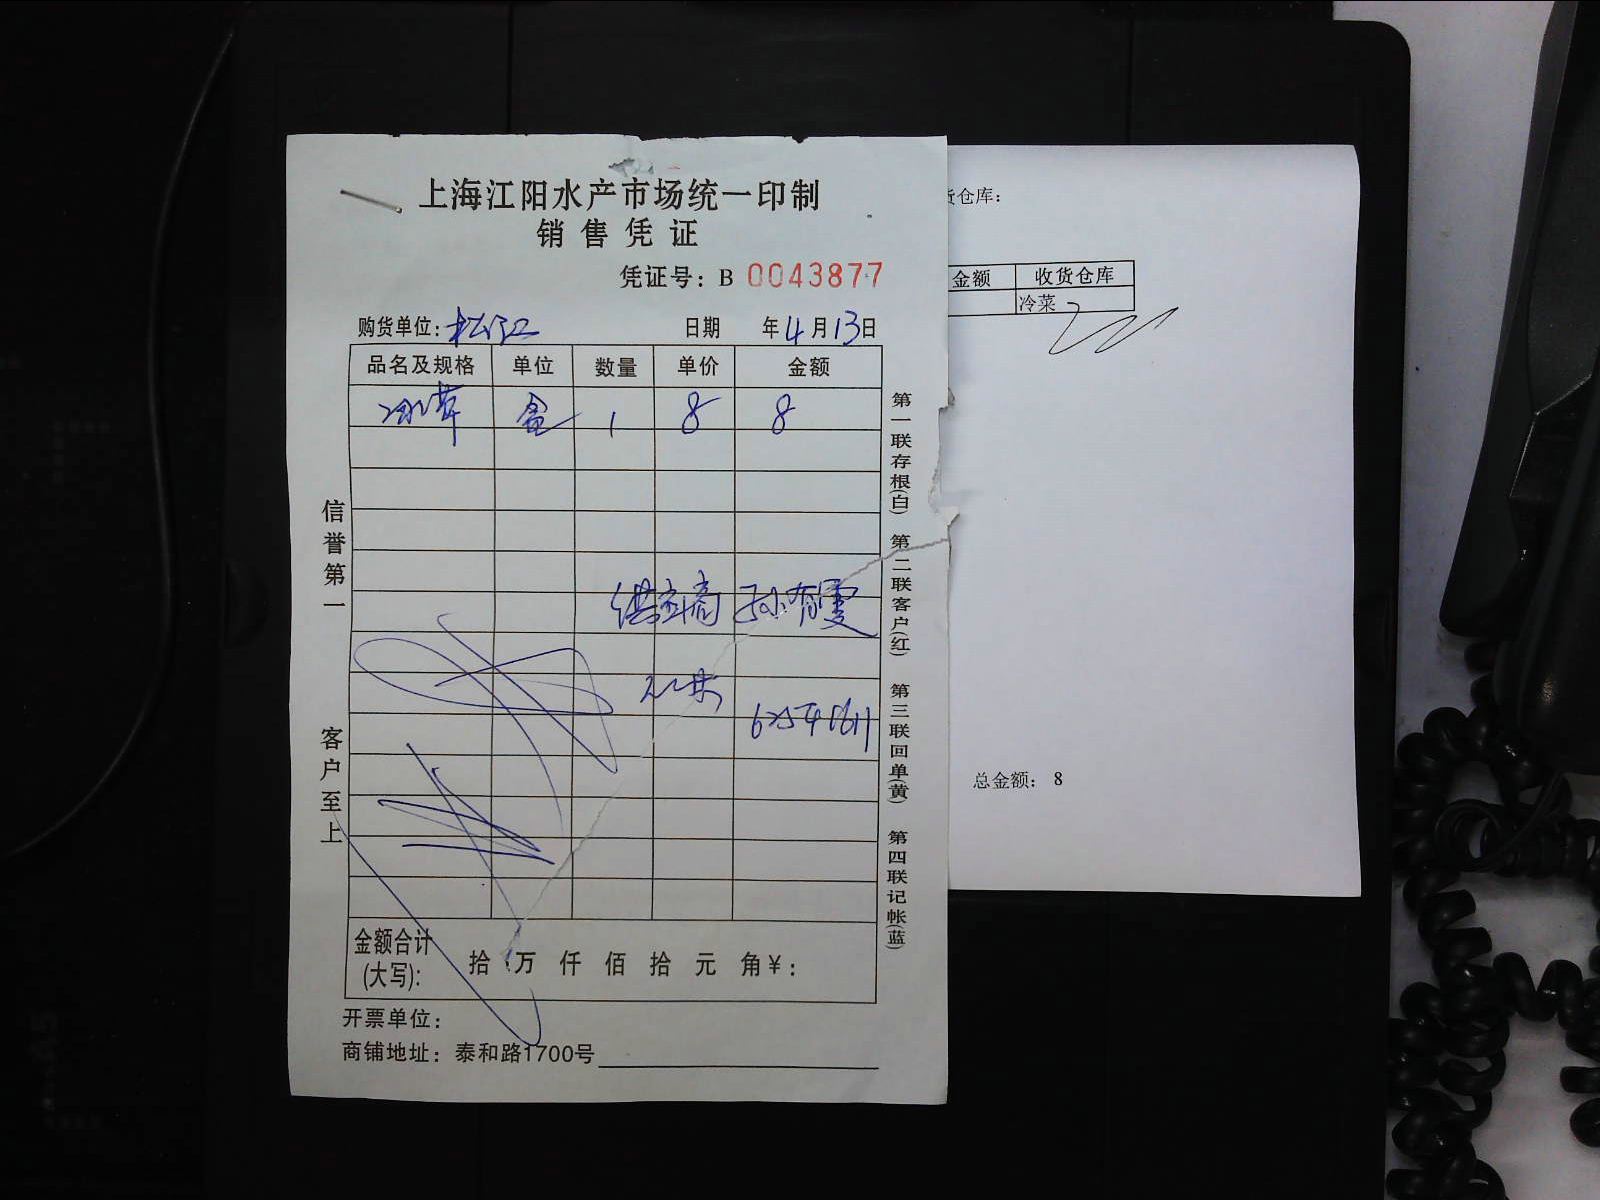 上海江阳水产市场统一印制
销售凭证
凭证号：B 0043877
购货单位：松江 日期 年4月13日
品名及规格 单位 数量 单价 金额
冰草 盒 1 8 8
供应商 孙有雯
金额合计(大写)： 拾 万 仟 佰 拾 元 角¥：
开票单位：
商铺地址：泰和路1700号
信誉第一
客户至上
第一联存根(白) 第二联客户(红) 第三联回单(黄) 第四联记帐(蓝)
仓库：
金额 收货仓库
冷菜
总金额： 8